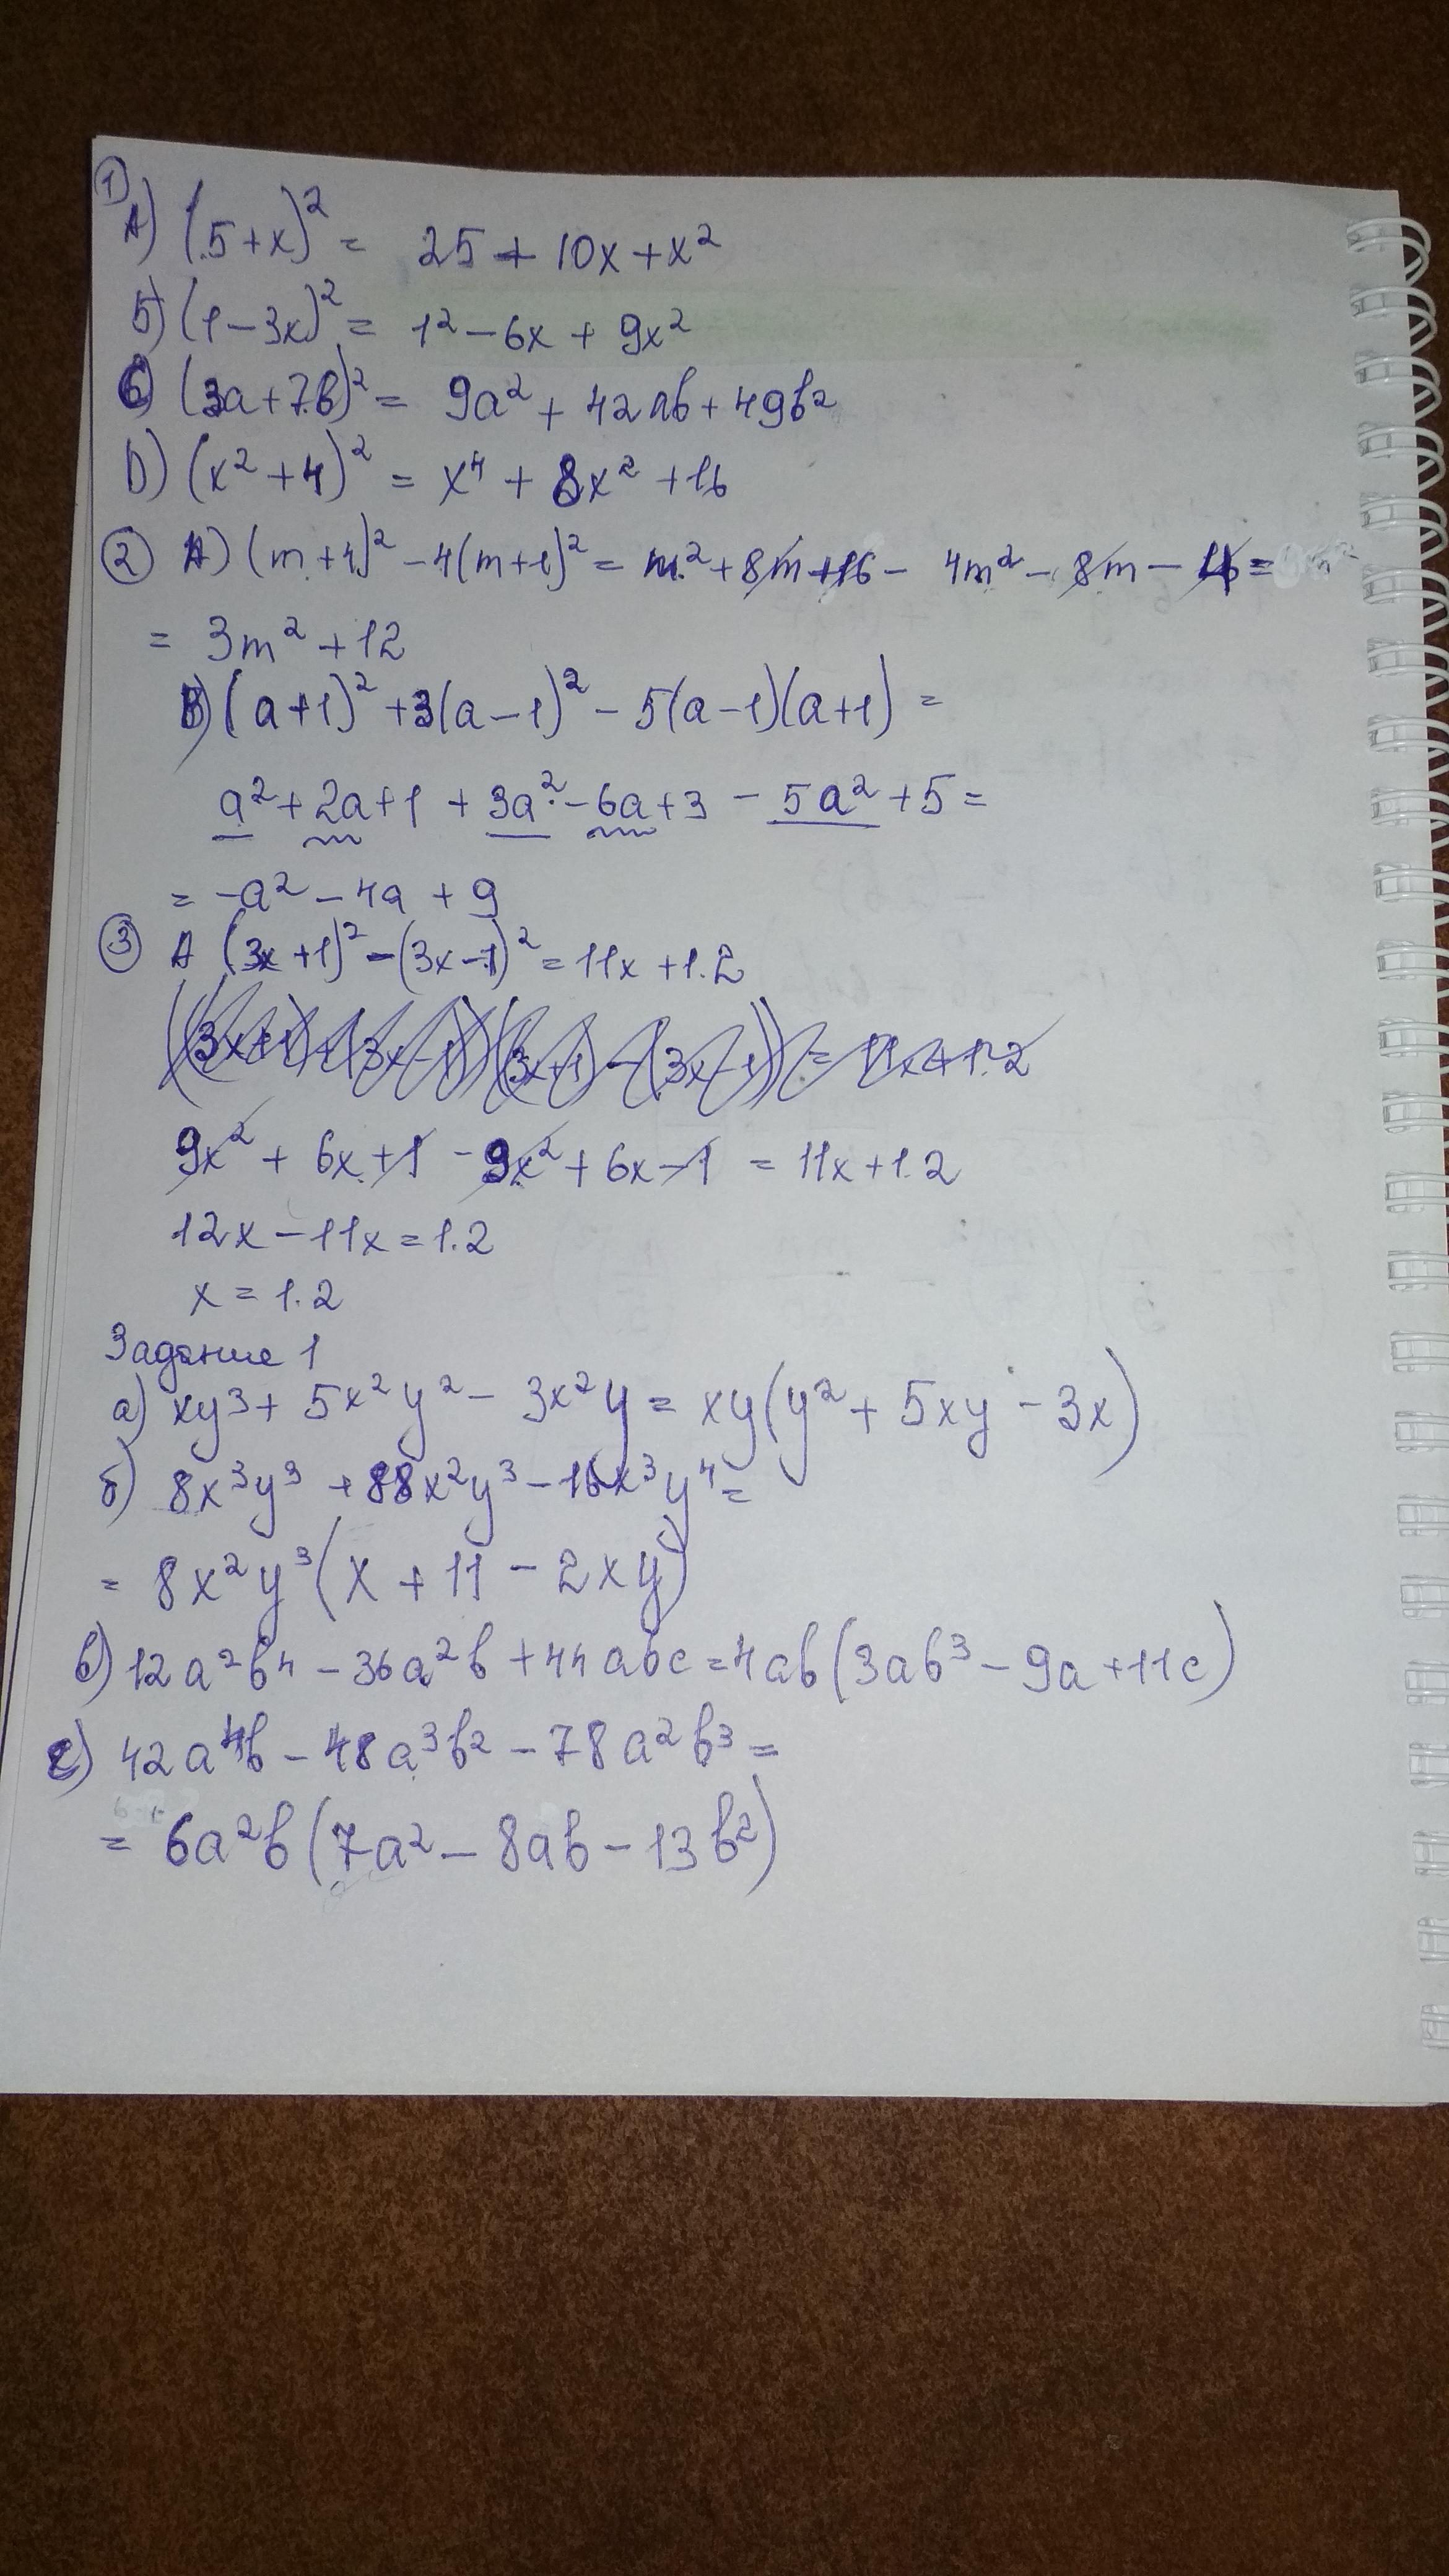 ①
А) (5+x)² = 25 + 10x + x²
Б) (1-3x)² = 1² - 6x + 9x²
C) (3a+7b)² = 9a² + 42ab + 49b²
D) (x²+4)² = x⁴ + 8x² + 16
② А) (m+4)² - 4(m+1)² = m² + 8m + 16 - 4m² - 8m - 4 =
= 3m² + 12
B) (a+1)² + 3(a-1)² - 5(a-1)(a+1) =
a² + 2a + 1 + 3a² - 6a + 3 - 5a² + 5 =
= -a² - 4a + 9
③ А (3x+1)² - (3x-1)² = 11x + 1.2
((3x+1)+(3x-1))((3x+1)-(3x-1)) = 11x + 1.2
9x² + 6x + 1 - 9x² + 6x - 1 = 11x + 1.2
12x - 11x = 1.2
x = 1.2
Задание 1
а) xy³ + 5x²y² - 3x²y = xy(y² + 5xy - 3x)
б) 8x³y³ + 88x²y³ - 16x³y⁴ =
= 8x²y³(x + 11 - 2xy)
в) 12a²b⁴ - 36a²b + 44abc = 4ab(3ab³ - 9a + 11c)
г) 42a⁴b - 48a³b² - 78a²b³ =
= 6a²b(7a² - 8ab - 13b²)